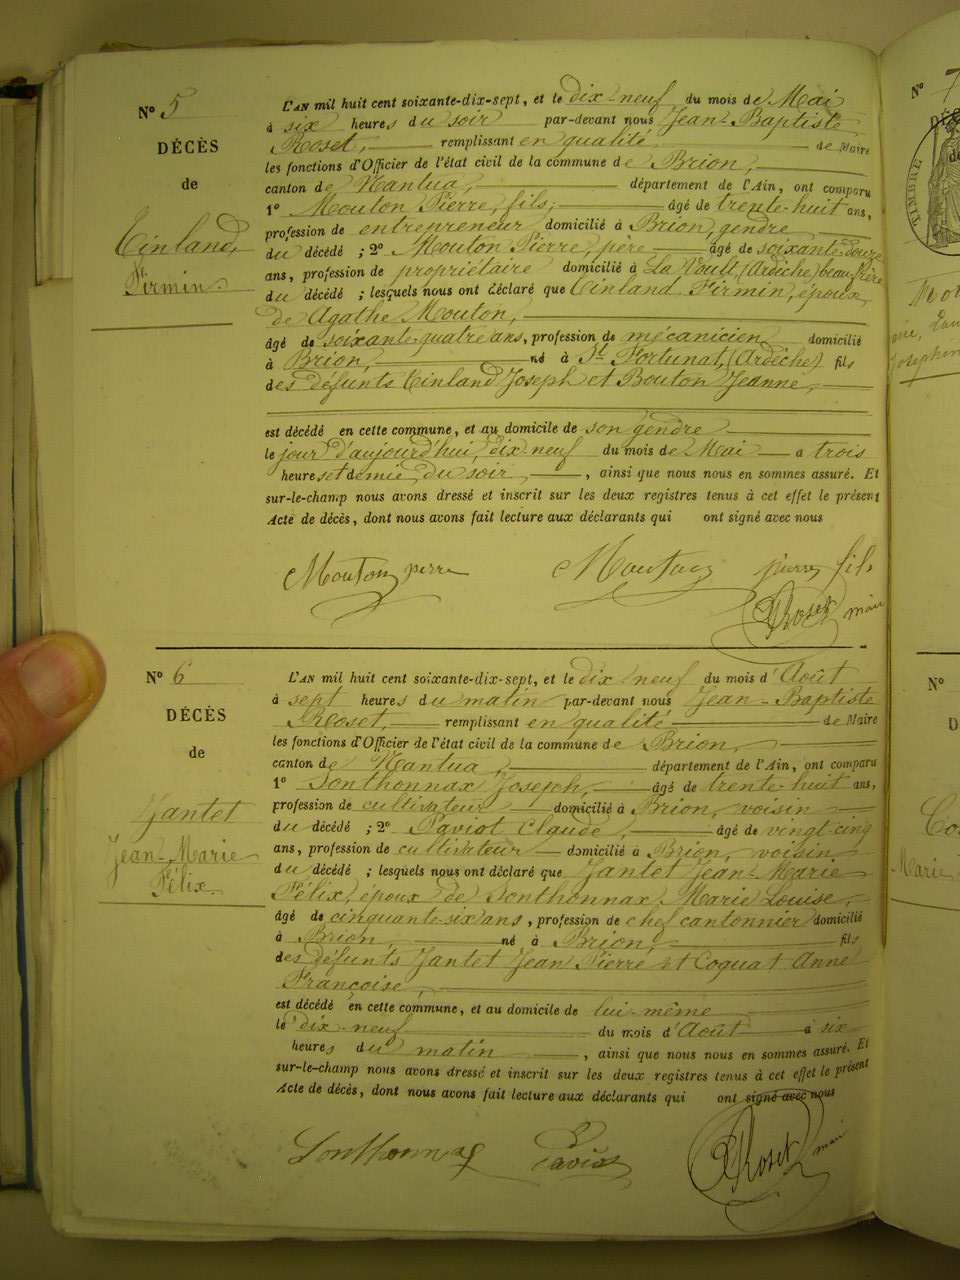 N° 5
DÉCÈS
de
Cinland,
Firmin.
L'AN mil huit cent soixante-dix-sept, et le dix-neuf du mois de Mai
à six heures du soir par-devant nous Jean-Baptiste
Roset, remplissant en qualité de Maire
les fonctions d'Officier de l'état civil de la commune de Brion,
canton de Nantua, département de l'Ain, ont comparu
1° Mouton Pierre, fils, âgé de trente-huit ans,
profession de entrepreneur domicilié à Brion, gendre
du décédé ; 2° Mouton Pierre, père âgé de soixante-douze
ans, profession de propriétaire domicilié à La Voult, (Ardèche) beau-frère
du décédé ; lesquels nous ont déclaré que Cinland Firmin, époux
de Agathe Mouton,
âgé de soixante-quatre ans, profession de mécanicien domicilié
à Brion, né à St Fortunat, (Ardèche) fils
des défunts Cinland Joseph et Bouton Jeanne,
est décédé en cette commune, et au domicile de son gendre
le jour d'aujourd'hui, dix-neuf du mois de Mai à trois
heures et demie du soir, , ainsi que nous nous en sommes assuré. Et
sur-le-champ nous avons dressé et inscrit sur les deux registres tenus à cet effet le présent
Acte de décès, dont nous avons fait lecture aux déclarants qui ont signé avec nous
Mouton pierre Mouton pierre fils
Roset maire
N° 6
DÉCÈS
de
Jantet
Jean-Marie
Félix.
L'AN mil huit cent soixante-dix-sept, et le dix-neuf du mois d'Août
à sept heures du matin par-devant nous Jean-Baptiste
Roset, remplissant en qualité de Maire
les fonctions d'Officier de l'état civil de la commune de Brion,
canton de Nantua, département de l'Ain, ont comparu
1° Sonthonnax Joseph, âgé de trente-huit ans,
profession de cultivateur domicilié à Brion, voisin
du décédé ; 2° Paviot Claude, âgé de vingt-cinq
ans, profession de cultivateur domicilié à Brion, voisin
du décédé ; lesquels nous ont déclaré que Jantet Jean-Marie
Félix, époux de Sonthonnax Marie Louise,
âgé de cinquante-six ans, profession de chef cantonnier domicilié
à Brion, né à Brion, fils
des défunts Jantet Jean Pierre et Coquat Anne
Françoise,
est décédé en cette commune, et au domicile de lui-même
le dix-neuf du mois d'Août à six
heures du matin , ainsi que nous nous en sommes assuré. Et
sur-le-champ nous avons dressé et inscrit sur les deux registres tenus à cet effet le présent
Acte de décès, dont nous avons fait lecture aux déclarants qui ont signé avec nous
Sonthonnax Paviot Roset maire
N° 7
TIMBRE
N°